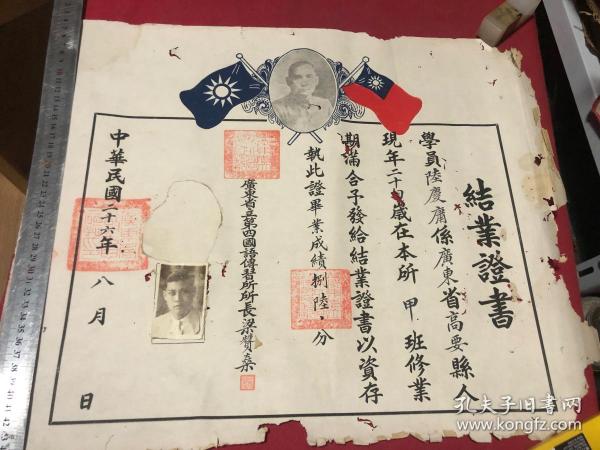 結業證書
學員陸慶庸係廣東省高要縣人
現年二十四歲在本所甲班修業
期滿合予發給結業證書以資存
執此證畢業成績捌陸·分
廣東省立第四國語傳習所所長梁贊燊
中華民國二十六年八月 日
孔夫子旧书网
www.kongfz.com